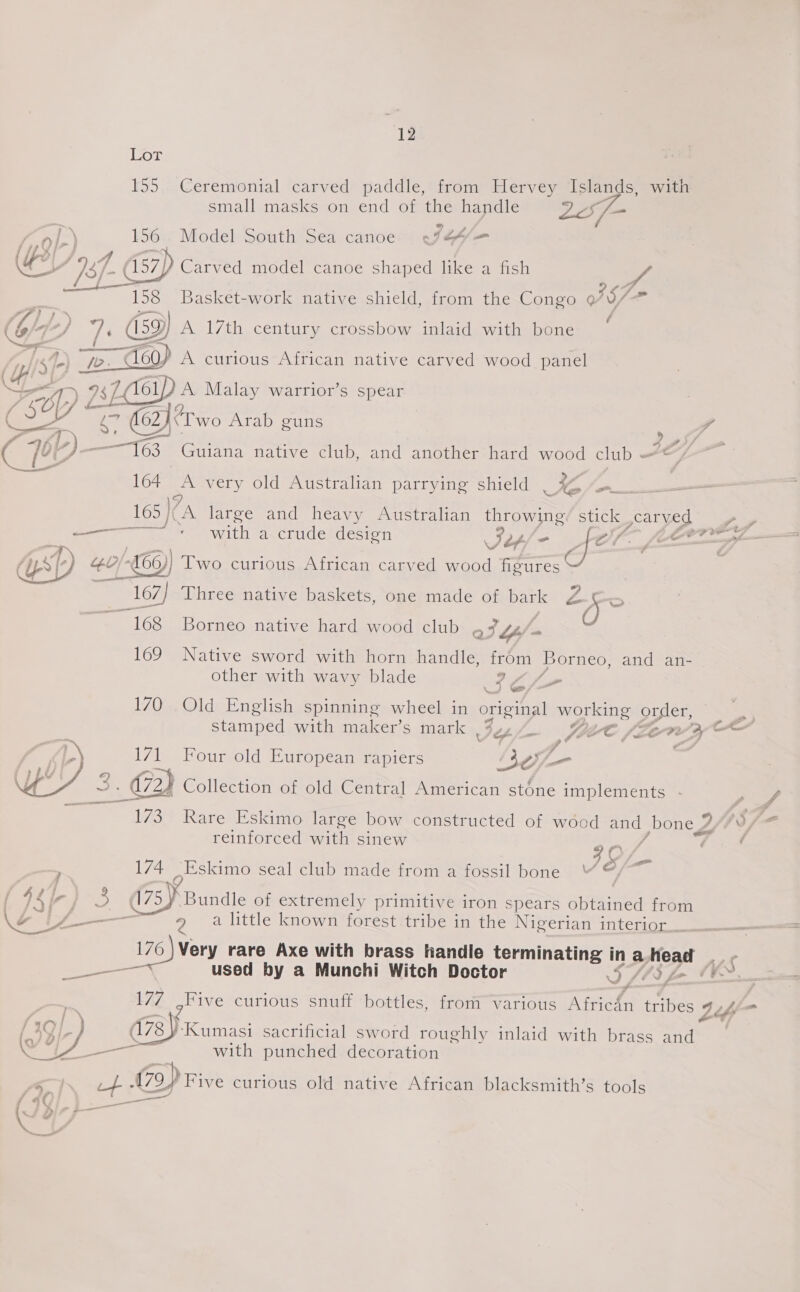 12
Lot
155 Ceremonial carved paddle, from Hervey Islands, with
small masks on end of the handle 25/-
156 Model South Sea canoe
157 Carved model canoe shaped like a fish
158 Basket-work native shield, from the Congo
159 A 17th century crossbow inlaid with bone
160 A curious African native carved wood panel
161 A Malay warrior's spear
162 Two Arab guns
163 Guiana native club, and another hard wood club
164 A very old Australian parrying shield
165 A large and heavy Australian throwing stick carved
with a crude design
166 Two curious African carved wood figures
167 Three native baskets, one made of bark
168 Borneo native hard wood club
169 Native sword with horn handle, from Borneo, and an-
other with wavy blade
170 Old English spinning wheel in original working order,
stamped with maker's mark
171 Four old European rapiers 30/-
172 Collection of old Central American stone implements -
173 Rare Eskimo large bow constructed of wood and bone
reinforced with sinew
174 Eskimo seal club made from a fossil bone
175 Bundle of extremely primitive iron spears obtained from
a little known forest tribe in the Nigerian interior
176 Very rare Axe with brass handle terminating in a head
used by a Munchi Witch Doctor
177 Five curious snuff bottles, from various African tribes
178 Kumasi sacrificial sword roughly inlaid with brass and
with punched decoration
179 Five curious old native African blacksmith's tools